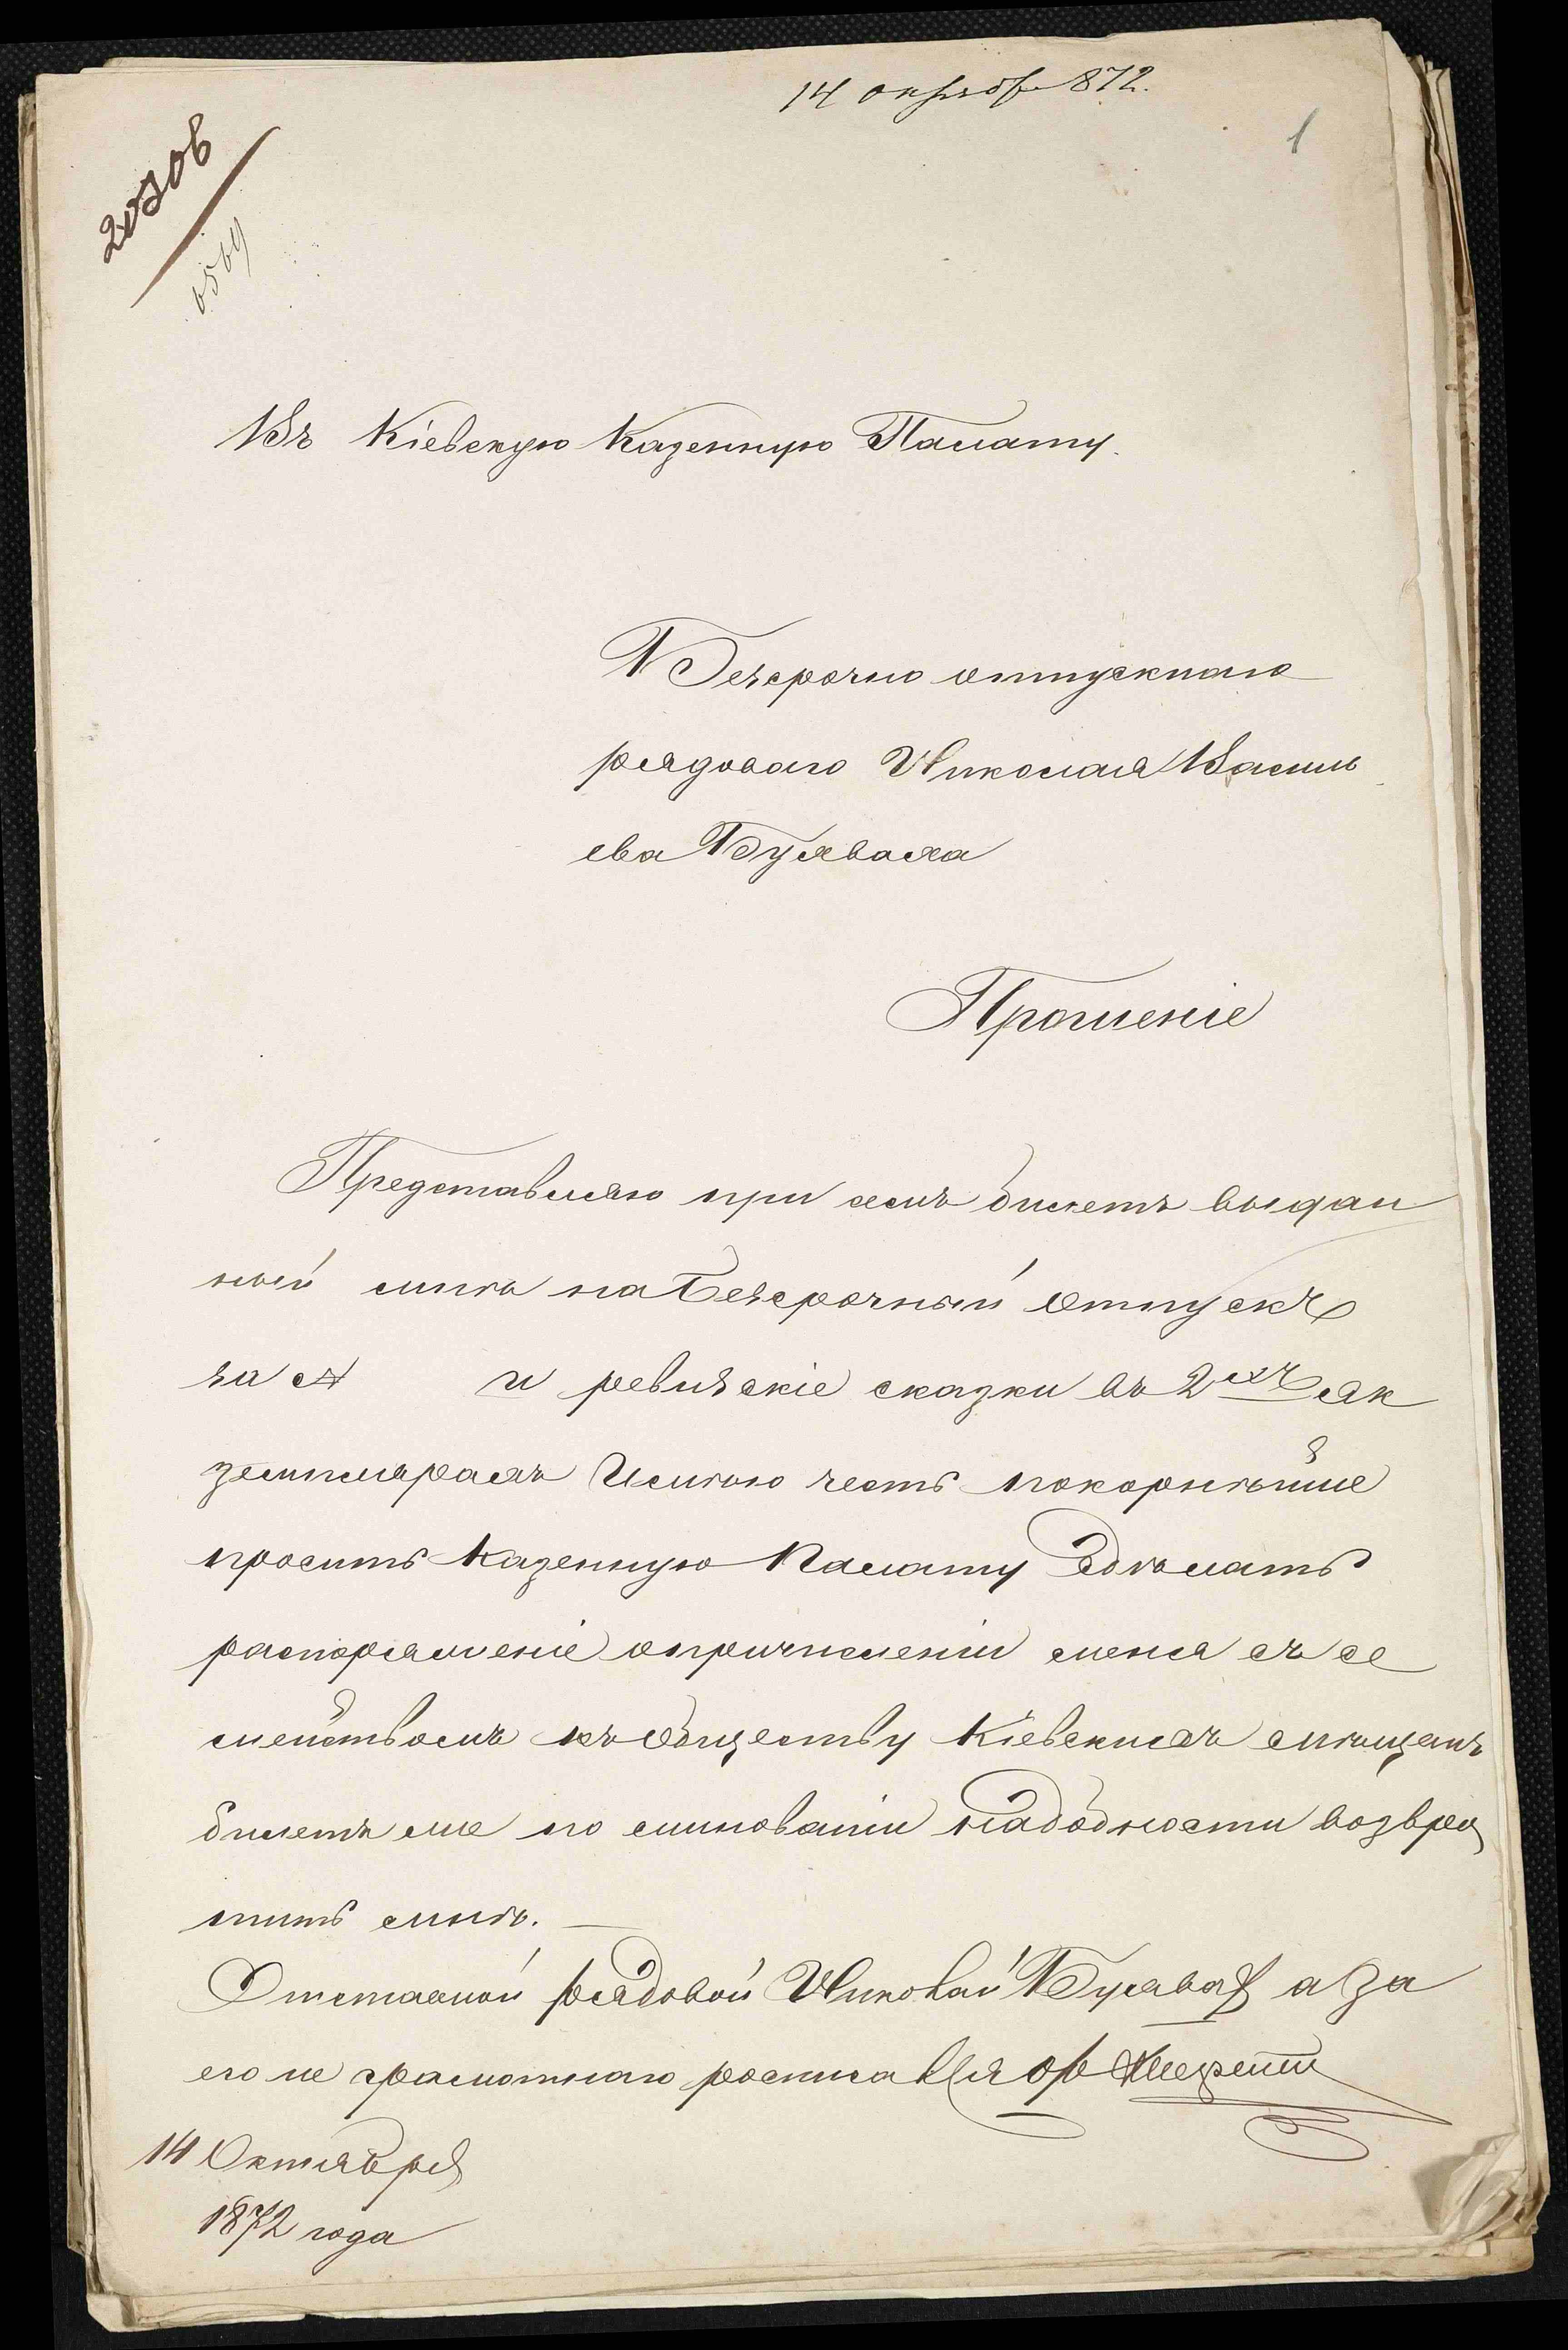 14 октября 872.
1
20208
6569
Въ Кіевскую Казенную Палату.
Безсрочно отпускнаго
рядоваго Николая Василь
ева Булаваха
Прошеніе
Представляю при семъ билетъ выдан
ный мнѣ на безсрочный отпускъ
за № и ревизскіе сказки въ 2хъ эк
земплярахъ Имѣю честь покорнѣйше
просить Казенную Палату сдѣлать
распоряженіе о причисленіи меня съ се
мействомъ къ обществу Кіевскихъ мѣщанъ
билетъ же по миновании надобности возвра
тить мнѣ. —
Отставной рядовой Николай Булавах а за
его не грамотнаго росписался
14 Октября
1872 года